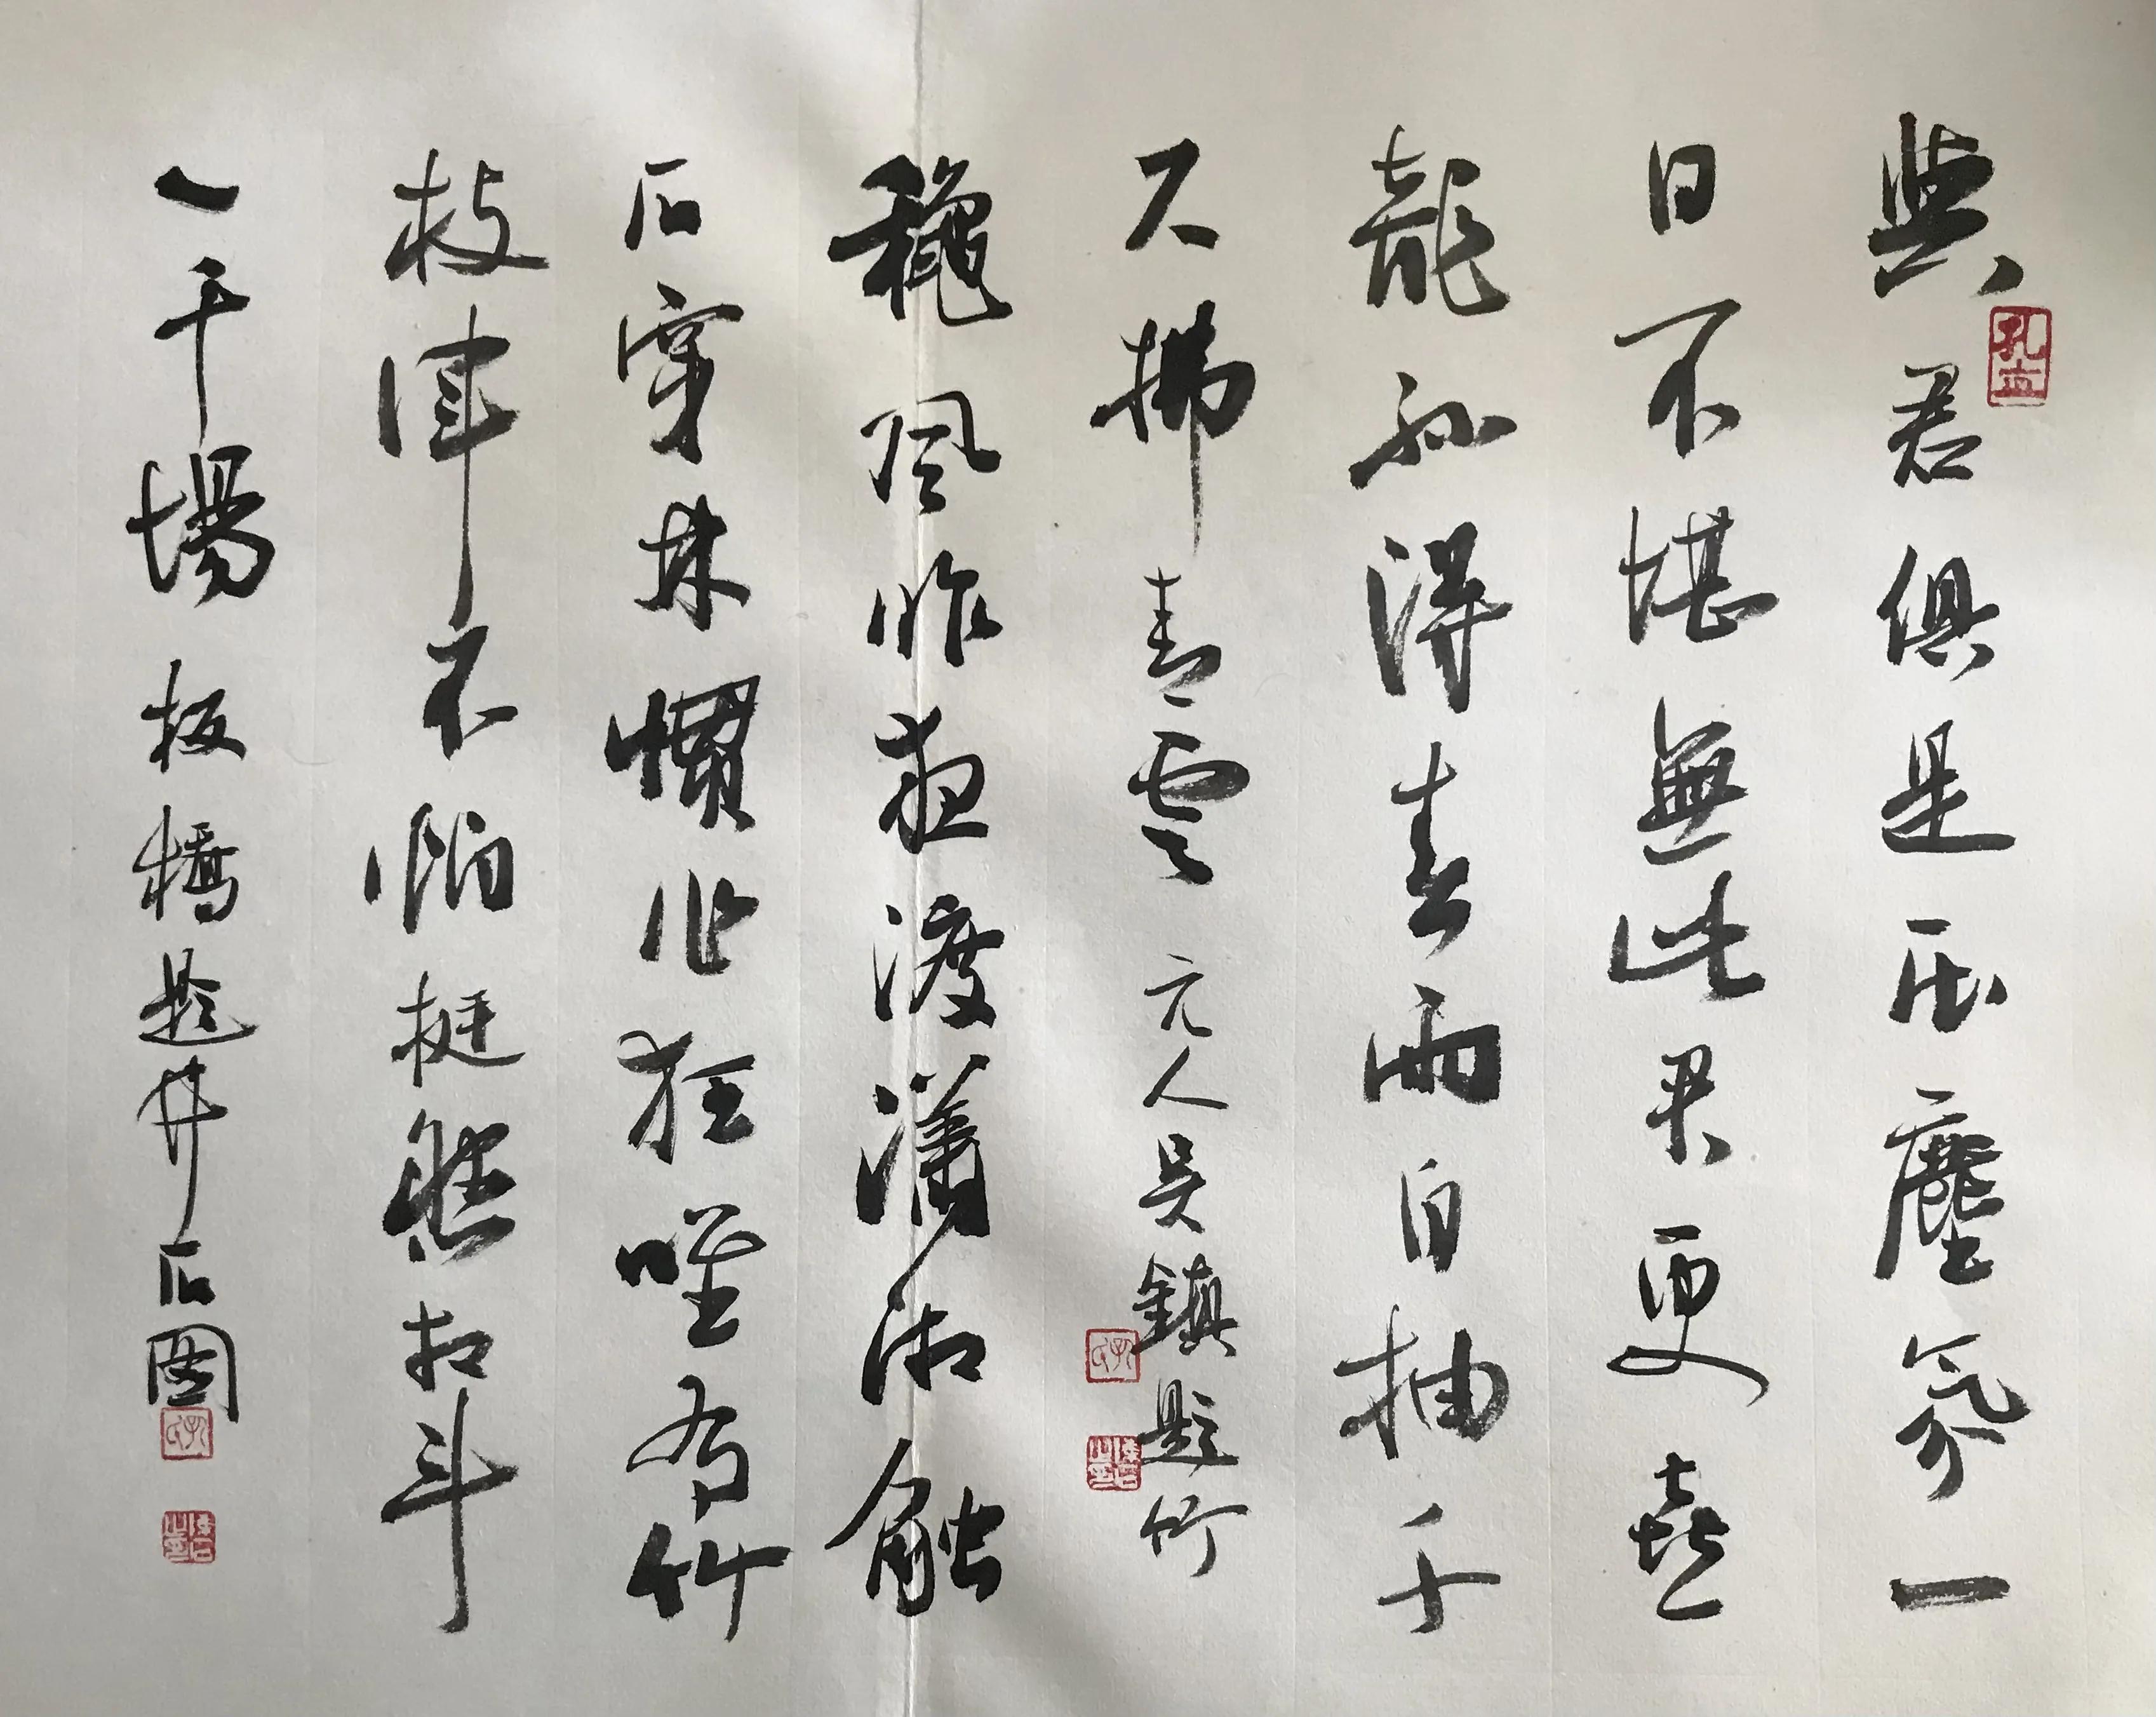 與君俱是压塵氛一
日不堪無此君更喜
龍孫得春雨自抽千
尺拂青雲 元人吳鎮題竹
龝風昨夜渡瀟湘觸
石穿林慣作狂唯有竹
枝渾不怕挺然相斗
一千場 板橋題井石圖